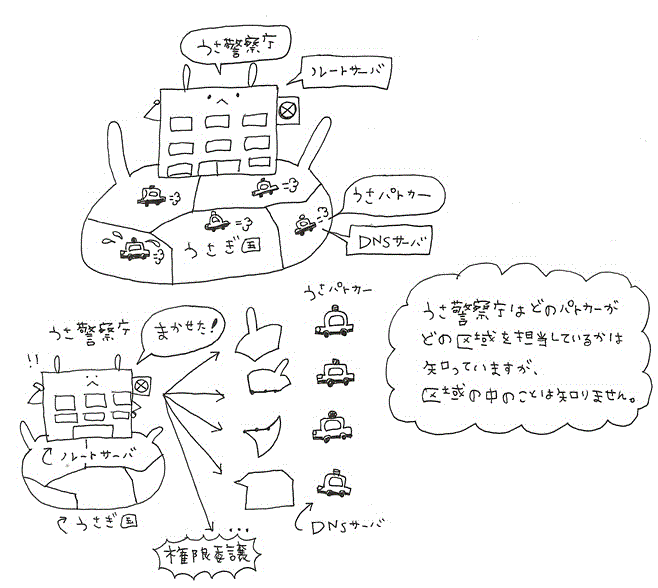 うさ警察庁
ルートサーバ
うさパトカー
DNSサーバ
うさぎ国
うさパトカー
うさ警察庁
まかせた!
!!
ルートサーバ
うさぎ国
DNSサーバ
...
権限委譲
うさ警察庁はどのパトカーが
どの区域を担当しているかは
知っていますが、
区域の中のことは知りません。